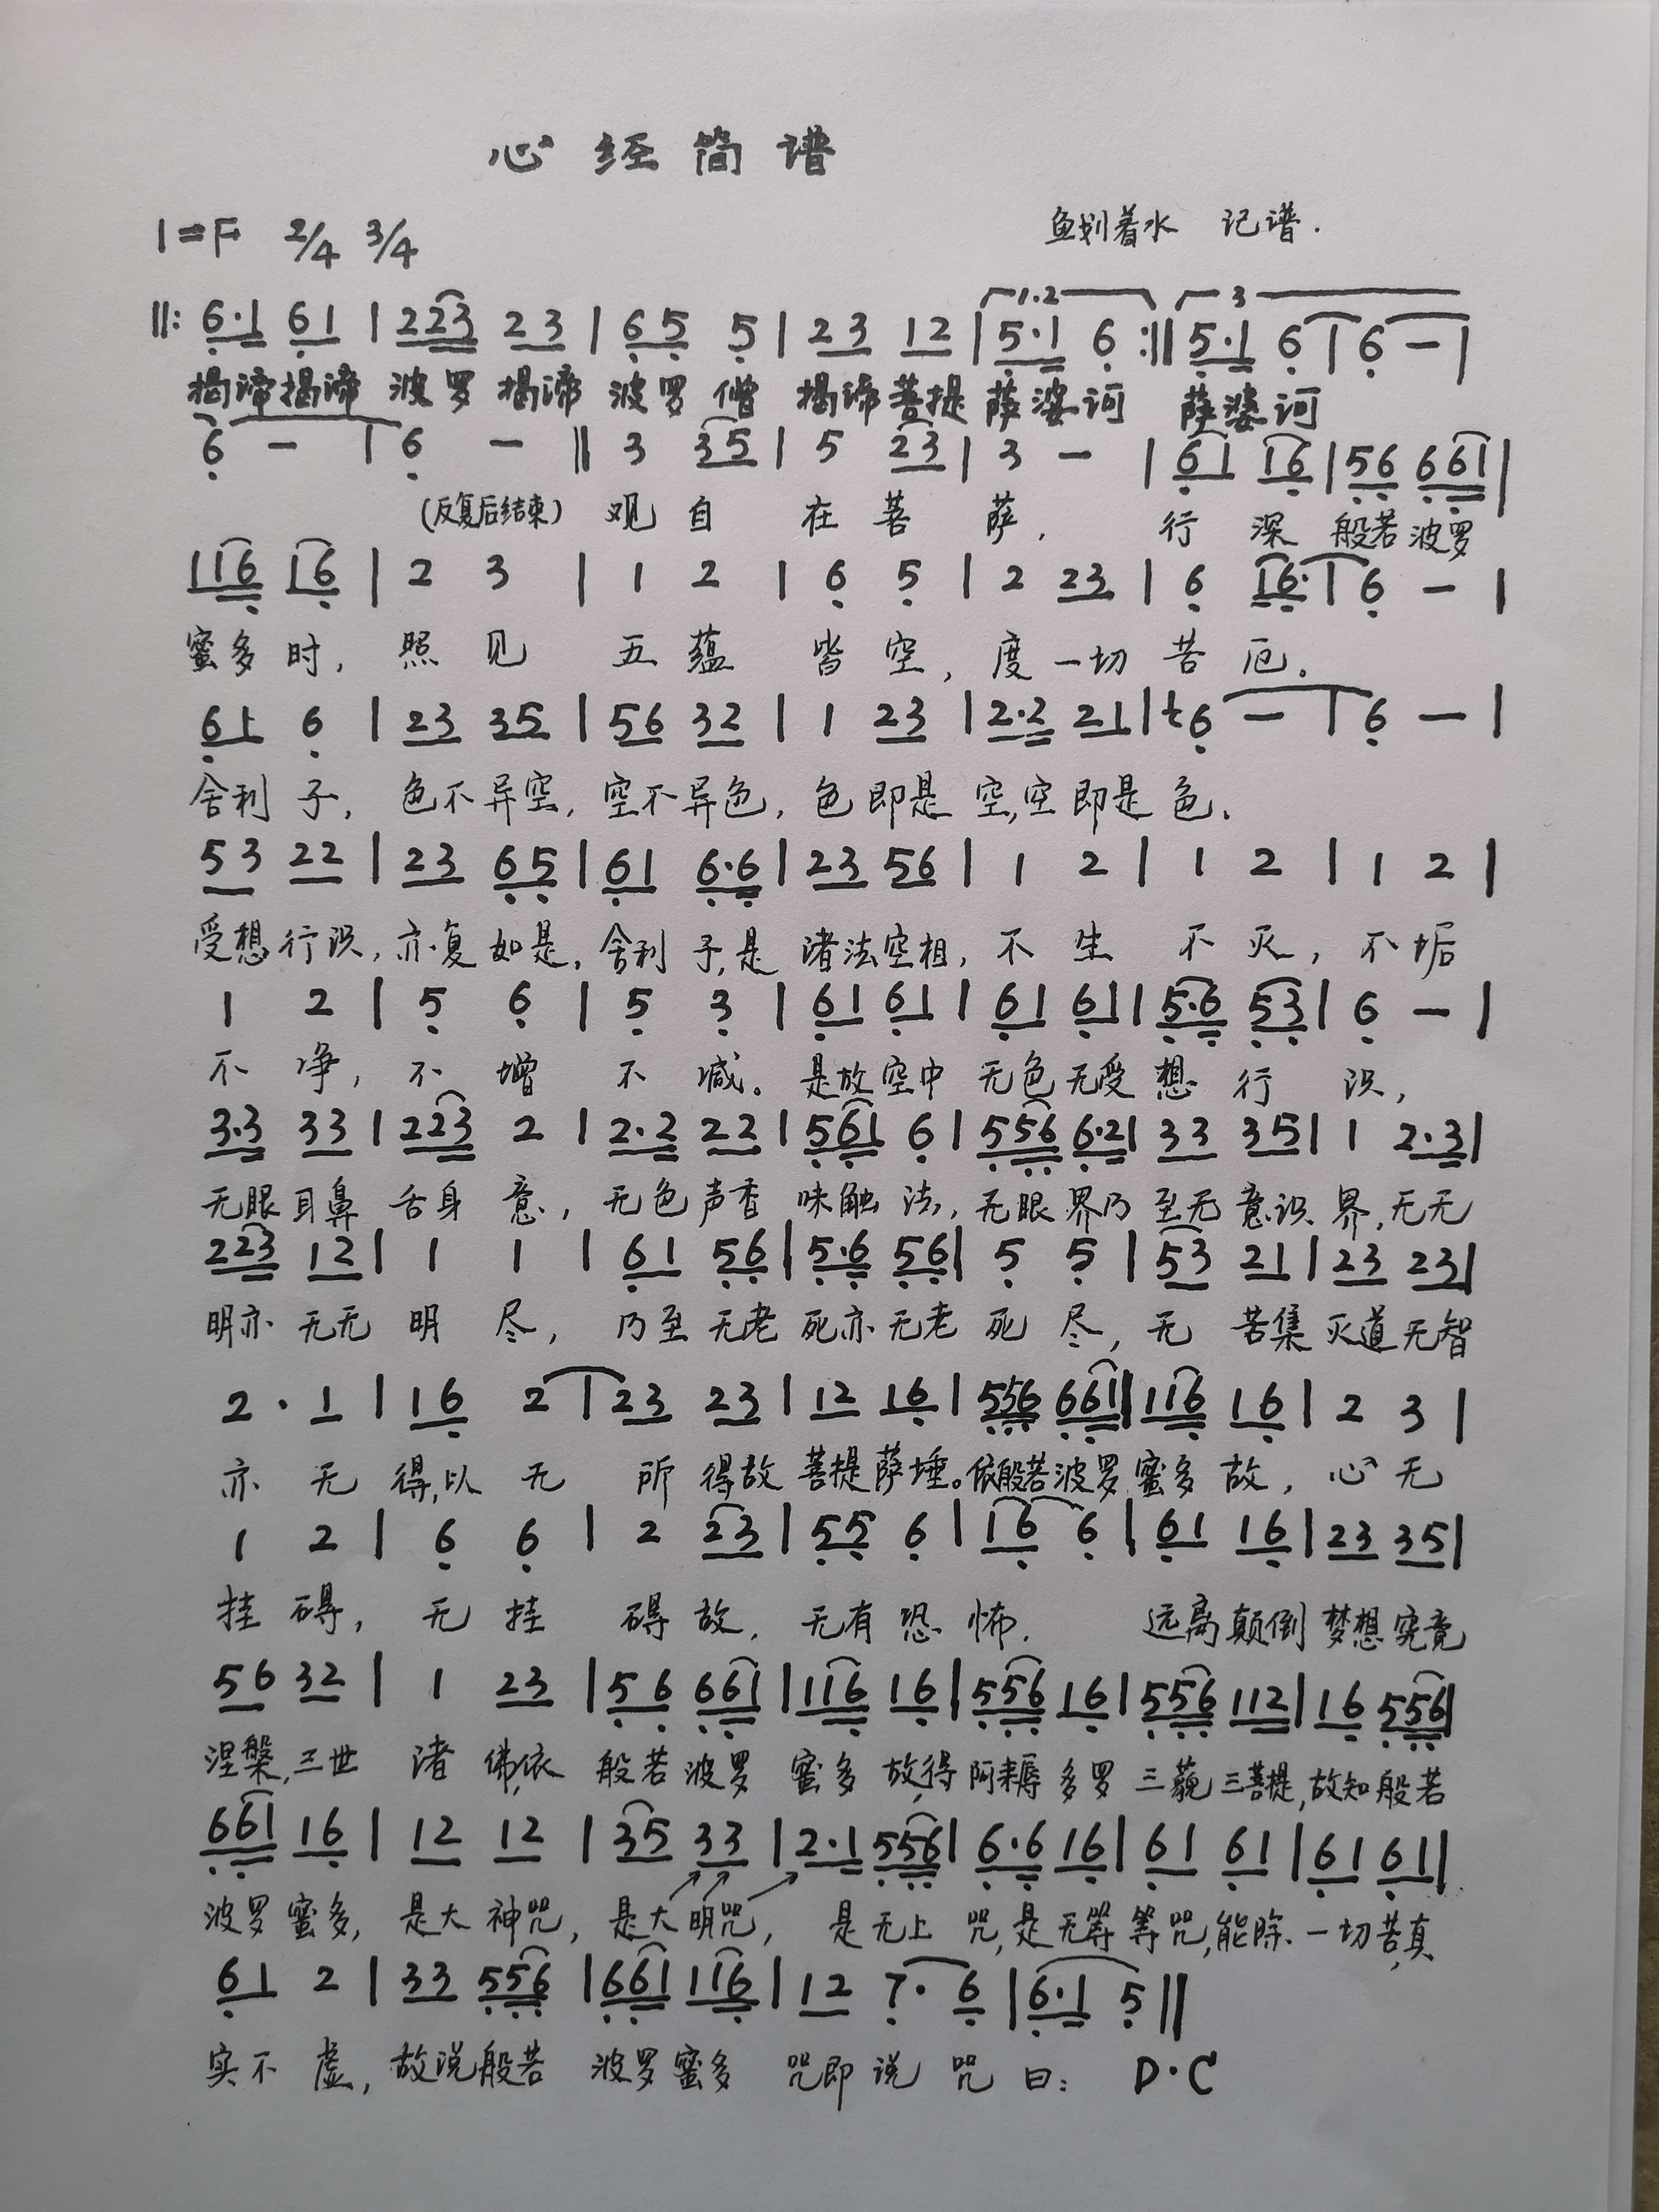 心经简谱
1=F 2/4 3/4
鱼划着水 记谱.
1.2 3
‖: 6·1 61 | 223 23 | 65 5 | 23 12 | 5·1 6 :‖ 5·1 6 | 6 — |
揭谛揭谛 波罗揭谛 波罗僧 揭谛菩提 萨婆诃 萨婆诃
6 — | 6 — ‖ 3 35 | 5 23 | 3 — | 61 16 | 56 661 |
(反复后结束) 观自在菩萨. 行深般若波罗
116 16 | 2 3 | 1 2 | 6 5 | 2 23 | 6 16· | 6 — |
蜜多时, 照见五蕴皆空, 度一切苦厄.
61 6 | 23 35 | 56 32 | 1 23 | 2·2 21 | 6 — | 6 — |
舍利子, 色不异空, 空不异色, 色即是空,空即是色.
53 22 | 23 65 | 61 6·6 | 23 56 | 1 2 | 1 2 | 1 2 |
受想行识,亦复如是,舍利子,是诸法空相,不生不灭,不垢
1 2 | 5 6 | 5 3 | 61 61 | 61 61 | 5·6 53 | 6 — |
不净, 不增不减。是故空中无色无受想行识,
3·3 33 | 223 2 | 2·2 22 | 561 6 | 556 6·2 | 33 35 | 1 2·3 |
无眼耳鼻舌身意, 无色声香味触法, 无眼界乃至无意识界,无无
223 12 | 1 1 | 61 56 | 5·6 56 | 5 5 | 53 21 | 23 23 |
明亦无无明尽, 乃至无老死亦无老死尽, 无苦集灭道无智
2· 1 | 16 2 | 23 23 | 12 16 | 556 661 | 116 16 | 2 3 |
亦无得,以无所得故菩提萨埵。依般若波罗蜜多故, 心无
1 2 | 6 6 | 2 23 | 55 6 | 16 6 | 61 16 | 23 35 |
挂碍, 无挂碍故, 无有恐怖. 远离颠倒梦想究竟
56 32 | 1 23 | 56 661 | 116 16 | 556 16 | 556 112 | 16 556 |
涅槃,三世诸佛,依般若波罗蜜多故,得阿耨多罗三藐三菩提,故知般若
661 16 | 12 12 | 35 33 | 2·1 556 | 6·6 16 | 61 61 | 61 61 |
波罗蜜多, 是大神咒, 是大明咒, 是无上咒,是无等等咒,能除一切苦,真
61 2 | 33 556 | 661 116 | 12 7· 6 | 6·1 5 ‖
实不虚, 故说般若波罗蜜多咒即说咒曰: D·C